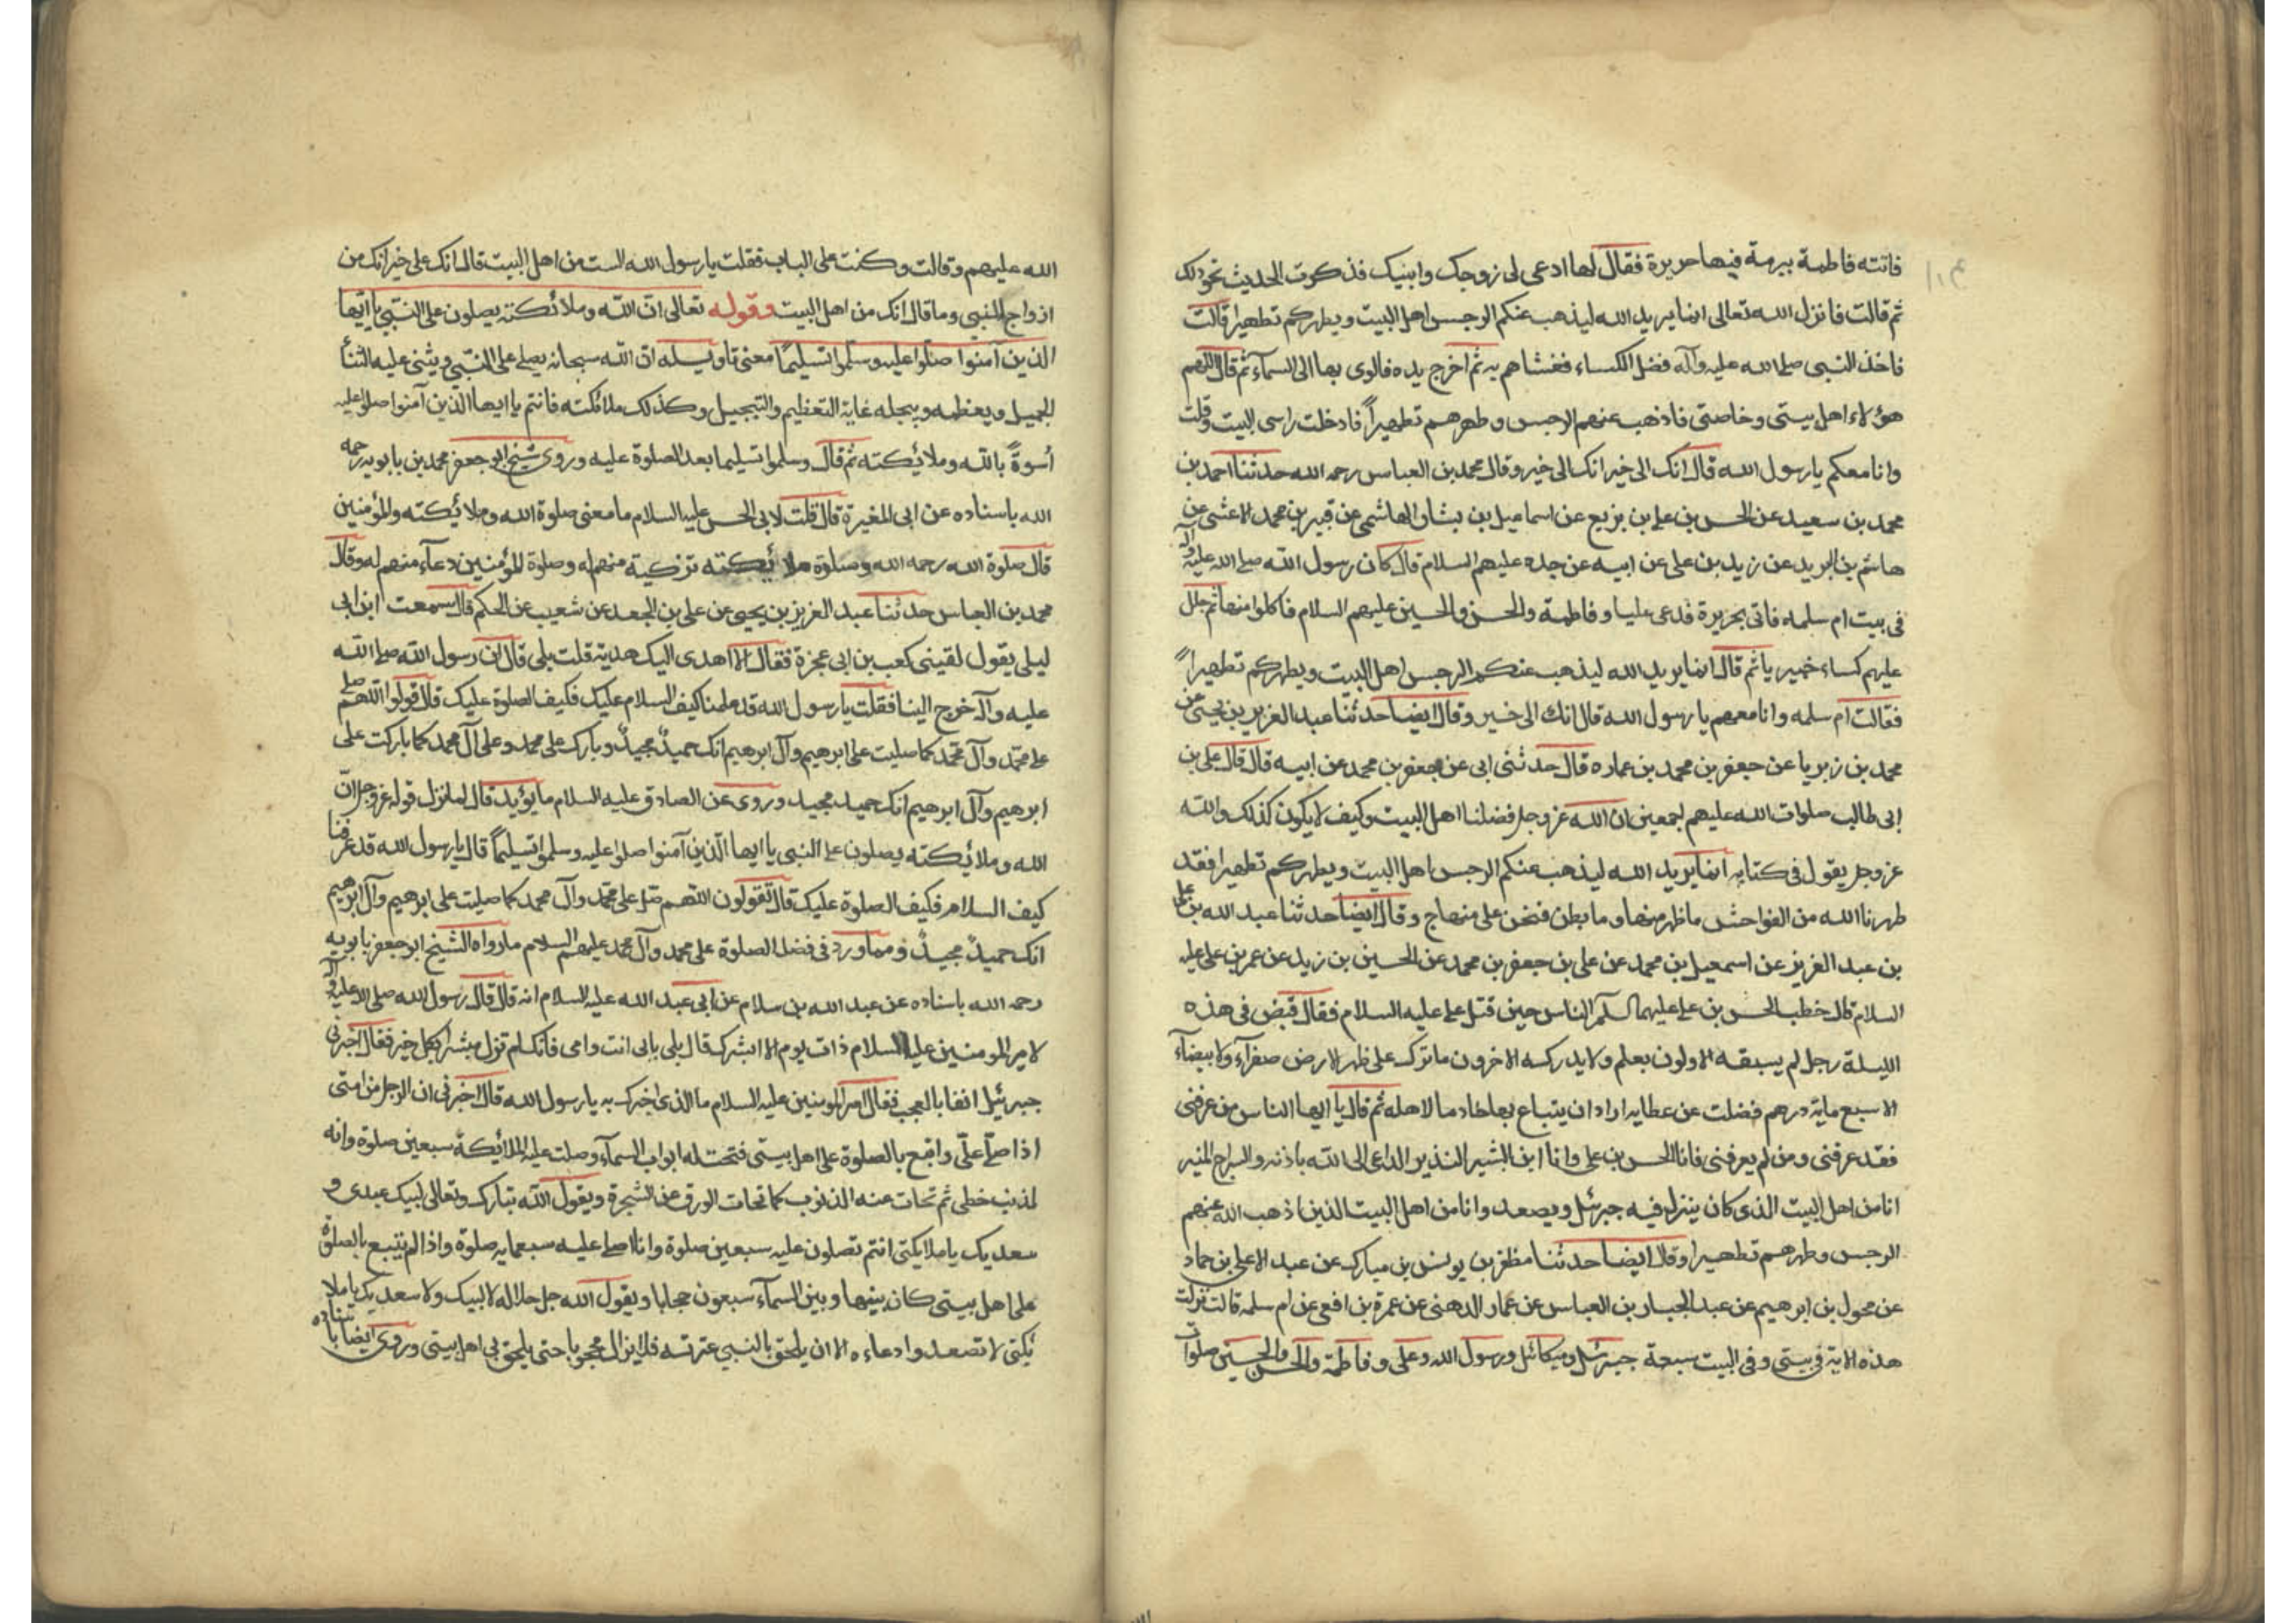 فاتته فاطمة ببرمة فيها حريرة فقال لها ادعى لى زوجك وابنيك فذكرت الحديث نحو ذلك
ثم قالت فانزل الله تعالى انما يريد الله ليذهب عنكم الرجس اهل البيت ويطهركم تطهيرا قالت
فاخذ النبى صلى الله عليه وآله فضل الكساء فغشاهم به ثم اخرج يده فالوى بها الى السمآء ثم قال اللهم
هؤلاء اهل بيتى وخاصتى فاذهب عنهم الرجس وطهرهم تطهيراً فادخلت راسى البيت وقلت
وانا معكم يا رسول الله قال انك الى خير انك الى خير وقال محمد بن العباس رحمه الله حدثنا احمد بن
محمد بن سعيد عن الحسن بن على بن بزيع عن اسماعيل بن بشار الهاشمى عن قيبر بن محمد الاعشى عن
هاشم بن البريد عن زيد بن على عن ابيه عن جده عليهم السلام قال كان رسول الله صلى الله عليه وآله
فى بيت ام سلمه فاتى بحريرة فدعى عليا وفاطمة والحسن والحسين عليهم السلام فاكلوا منها ثم جلل
عليهم كساء خيبريا ثم قال انما يريد الله ليذهب عنكم الرجس اهل البيت ويطهركم تطهيراً
فقالت ام سلمه وانا معهم يا رسول الله قال انك الى خير وقال ايضا حدثنا عبد العزيز بن يحيى عن
محمد بن زبريا عن جعفر بن محمد بن عماره قال حدثنى ابى عن جعفر بن محمد عن ابيه قال قال على بن
ابى طالب صلوات الله عليهم اجمعين ان الله عز وجل فضلنا اهل البيت وكيف لا يكون كذلك والله
عز وجل يقول فى كتابه انما يريد الله ليذهب عنكم الرجس اهل البيت ويطهركم تطهيرا فقد
طهرنا الله من الفواحش ما ظهر منها وما بطن فنحن على منهاج وقال ايضا حدثنا عبد الله بن على
بن عبد العزيز عن اسمعيل بن محمد عن على بن جعفر بن محمد عن الحسين بن زيد عن عمر بن على عليه
السلام قال خطب الحسن بن على عليهما السلم الناس حين قتل على عليه السلام فقال قبض فى هذه
الليلة رجل لم يسبقه الاولون بعلم ولا يدركه الاخرون ما ترك على ظهر الارض صفرآء ولا بيضآء
الا سبع ماية درهم فضلت عن عطايه اراد ان يبتاع بها خادما لاهله ثم قال يا ايها الناس من عرفنى
فقد عرفنى ومن لم يعرفنى فانا الحسن بن على وانا ابن البشير النذير الداعى الى الله باذنه والسراج المنير
انا من اهل البيت الذى كان ينزل فيه جبرئيل ويصعد وانا من اهل البيت الذين اذهب الله عنهم
الرجس وطهرهم تطهيرا وقال ايضا حدثنا مظفر بن يونس بن مبارك عن عبد الاعلى بن حماد
عن مخول بن ابرهيم عن عبد الجبار بن العباس عن عمار الدهنى عن عمرة بن افعى عن ام سلمه قالت نزلت
هذه الاية فى بيتى وفى البيت سبعة جبرئيل وميكائيل ورسول الله وعلى وفاطمة والحسن والحسين صلوات
الله عليهم وقالت وكنت على الباب فقلت يا رسول الله الست من اهل البيت قال انك على خير انك من
ازواج النبى وما قال انك من اهل البيت وقوله تعالى ان الله وملائكته يصلون على النبى يا ايها
الذين آمنوا صلّوا عليه وسلّموا تسليمًا معنى تاويله ان الله سبحانه يصلى على النبى ويثنى عليه الثنآ
الجميل ويعظمه ويبجله غاية التعظيم والتبجيل وكذلك ملائكته فانتم يا ايها الذين آمنوا صلوا عليه
أسوةً بالله وملائكته ثم قال وسلموا تسليما بعد الصلوة عليه وروى شيخ ابو جعفر محمد بن بابويه رحمه
الله باسناده عن ابى المغيرة قال قلت لابى الحسن عليه السلام ما معنى صلوة الله وملائكته والمؤمنين
قال صلوة الله رحمه الله وصلوة ملائكته تزكية منهم له وصلوة المؤمنين دعآء منهم له وقال
محمد بن العباس حدثنا عبد العزيز بن يحيى عن على بن الجعد عن شعيب عن الحكم قال سمعت ابن ابى
ليلى يقول لقينى كعب بن ابى عجزة فقال الا اهدى اليك هدية قلت بلى قال ان رسول الله صلى الله
عليه وآله خرج الينا فقلت يا رسول الله قد علمنا كيف السلام عليك فكيف الصلوة عليك قال قولوا اللهم صل
على محمد وآل محمد كما صليت على ابرهيم وآل ابرهيم انك حميدٌ مجيدٌ وبارك على محمد وعلى آل محمد كما باركت على
ابرهيم وآل ابرهيم انك حميد مجيد وروى عن الصادق عليه السلام ما يؤيد قال لما نزل قوله عز وجل انّ
الله وملائكته يصلون على النبى يا ايها الّذين آمنوا صلوا عليه وسلموا تسليماً قال يا رسول الله قد عرفنا
كيف السلام فكيف الصلوة عليك قال تقولون اللهم صل على محمد وآل محمد كما صليت على ابرهيم وآل ابرهيم
انك حميدٌ مجيدٌ ومما ورد فى فضل الصلوة على محمد وآل محمد عليهم السلام ما رواه الشيخ ابو جعفر بابويه
رحمه الله باسناده عن عبد الله بن سلام عن ابى عبد الله عليه السلام انه قال قال رسول الله صلى الله عليه وآله
لامير المومنين عليه السلام ذات يوم الا ابشرك قال بلى بابى انت وامى فانك لم تزل مبشرا بكل خير فقال اخبرنى
جبرئيل انفا بالعجب فقال امير المومنين عليه السلام ما الذى اخبرك به يا رسول الله قال اخبرنى ان الرجل من امتى
اذا صلّى علىّ واتبع بالصلوة على اهل بيتى فتحت له ابواب السمآء وصلت عليه الملائيكة سبعين صلوة وانه
لمذنب خطى ثم تحات عنه الذنوب كما تحات الورق عن الشجرة ويقول الله تبارك وتعالى لبيك عبدى و
سعديك يا ملايكتى انتم تصلون عليه سبعين صلوة وانا اصلى عليه سبعمايه صلوة واذا لم يتبع بالصلوة
على اهل بيتى كان بينها وبين السمآء سبعون حجابا ويقول الله جل جلاله لا لبيك ولا سعديك يا ملا
ئكتى لا تصعدوا دعاءه الا ان يلحق بالنبي عترته فلا يزال محجوبا حتى يلحق بى اهل بيتى وروى ايضا باسناده